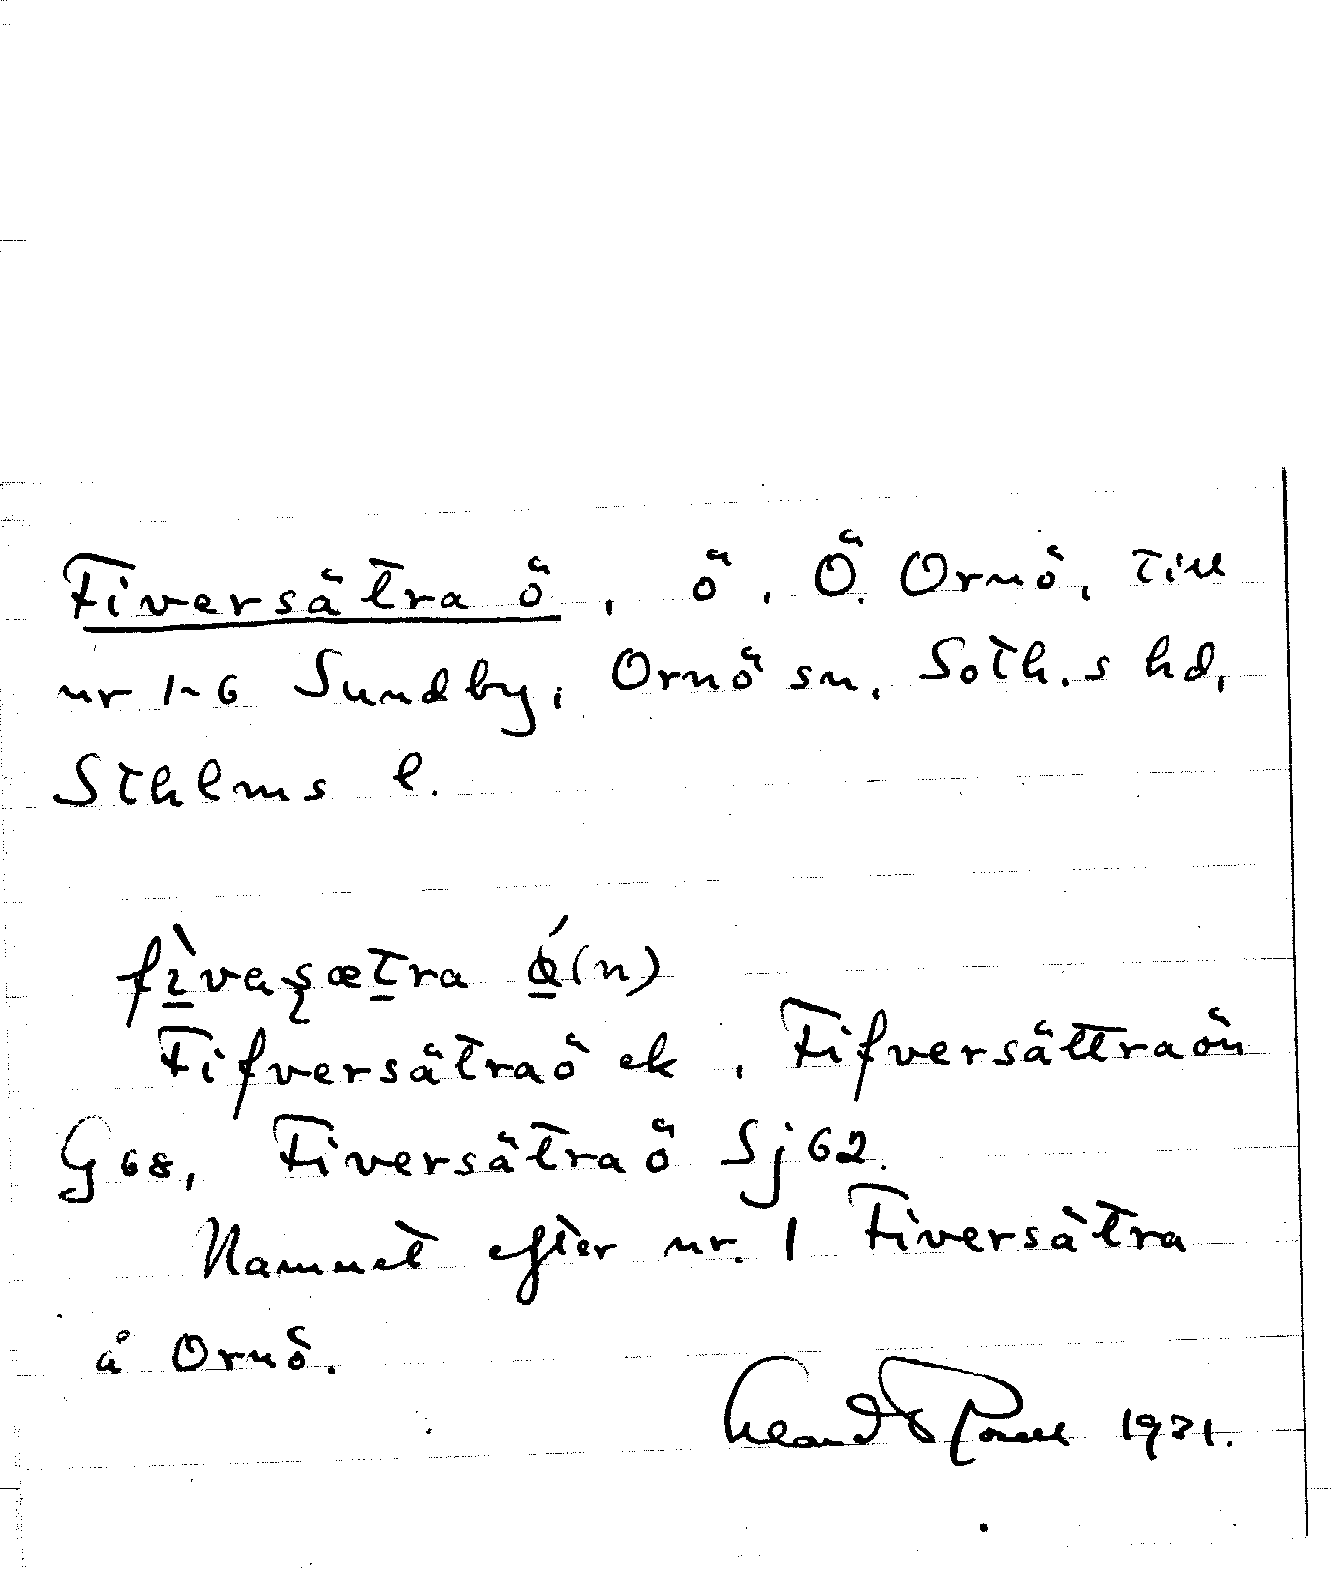 Fiversätra ö, ö, Ö. Ornö, till
nr 1-6 Sundby, Ornö sn, Soth.s hd,
Sthlms l.
fìvaʂætra ǿ(n)
Fifversätraö ek, Fifversättraön
G 68, Fiversätraö Sj 62.
Namnet efter nr. 1 Fiversätra
å Ornö.
1931.